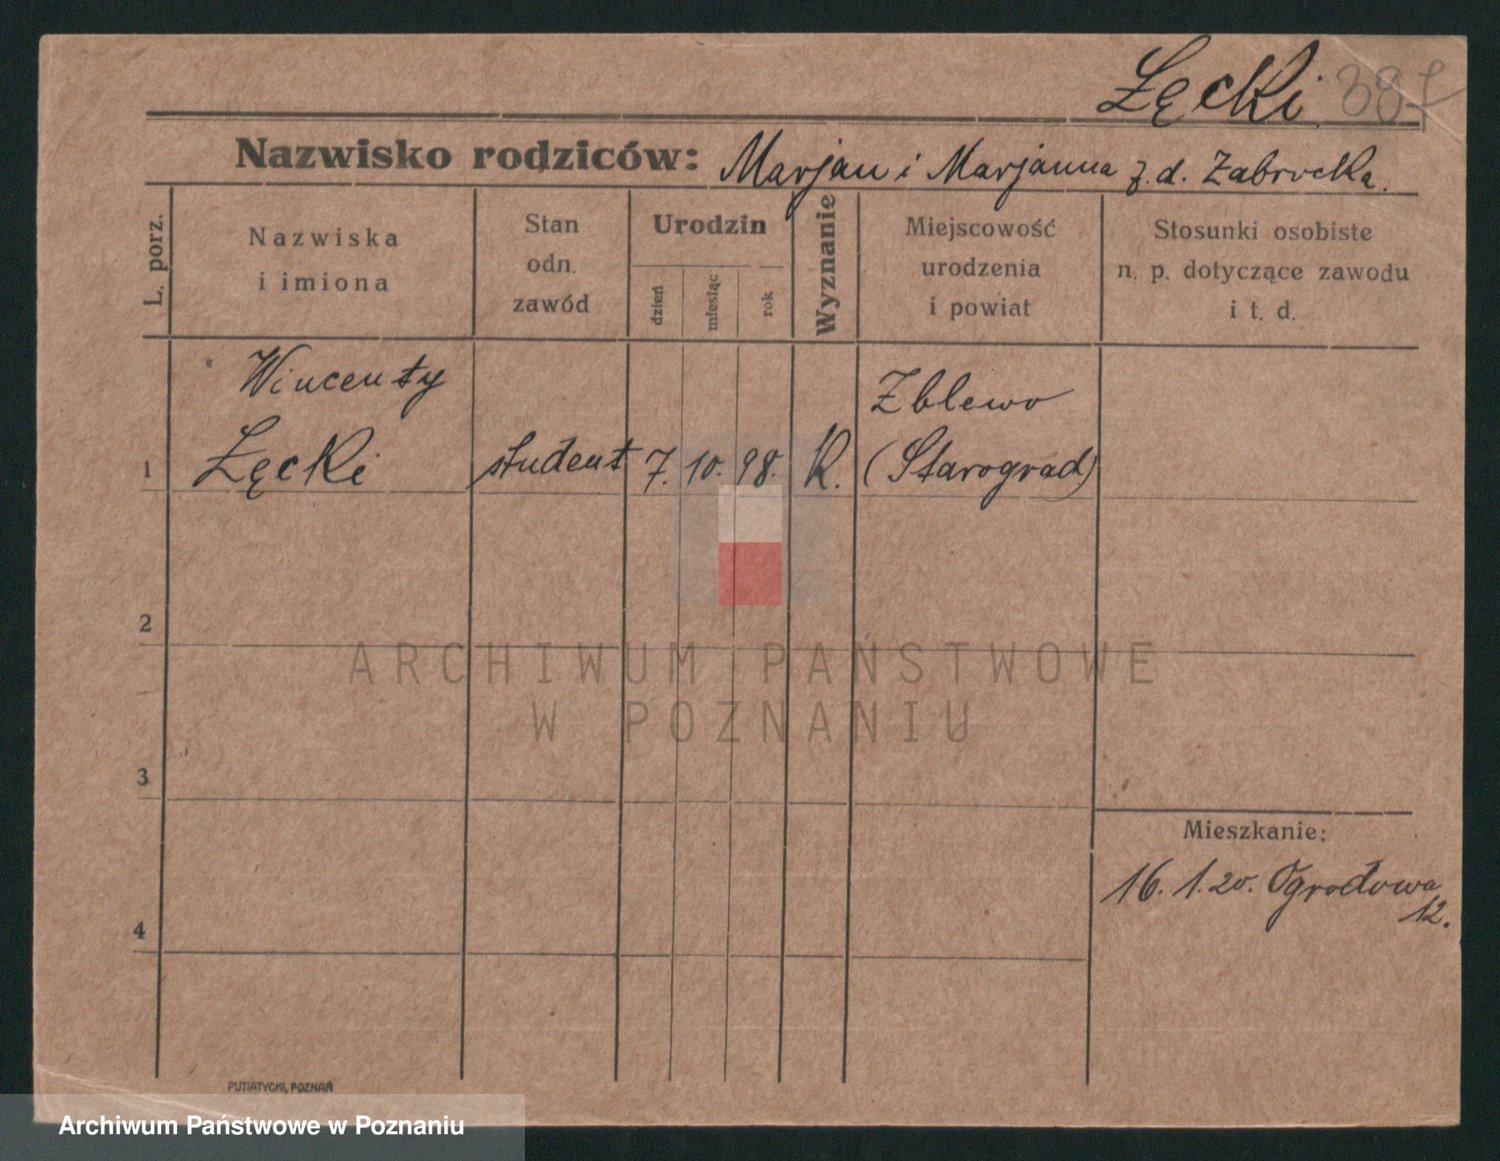 Łęcki 387
Nazwisko rodziców: Marjan i Marjanna z.d. Zabrocka.
L. porz.
Nazwiska
i imiona
Stan
odn.
zawód
Urodzin
dzień
miesiąc
rok
Wyznanie
Miejscowość
urodzenia
i powiat
Stosunki osobiste
n. p. dotyczące zawodu
i t. d.
Wincenty Zblewo
1 Łęcki student 7. 10. 98. K. (Starograd)
2
ARCHIWUM PAŃSTWOWE
W POZNANIU
3
Mieszkanie:
16. 1. 20. Ogrodowa
12.
4
PUTIATYCKI, POZNAŃ
Archiwum Państwowe w Poznaniu